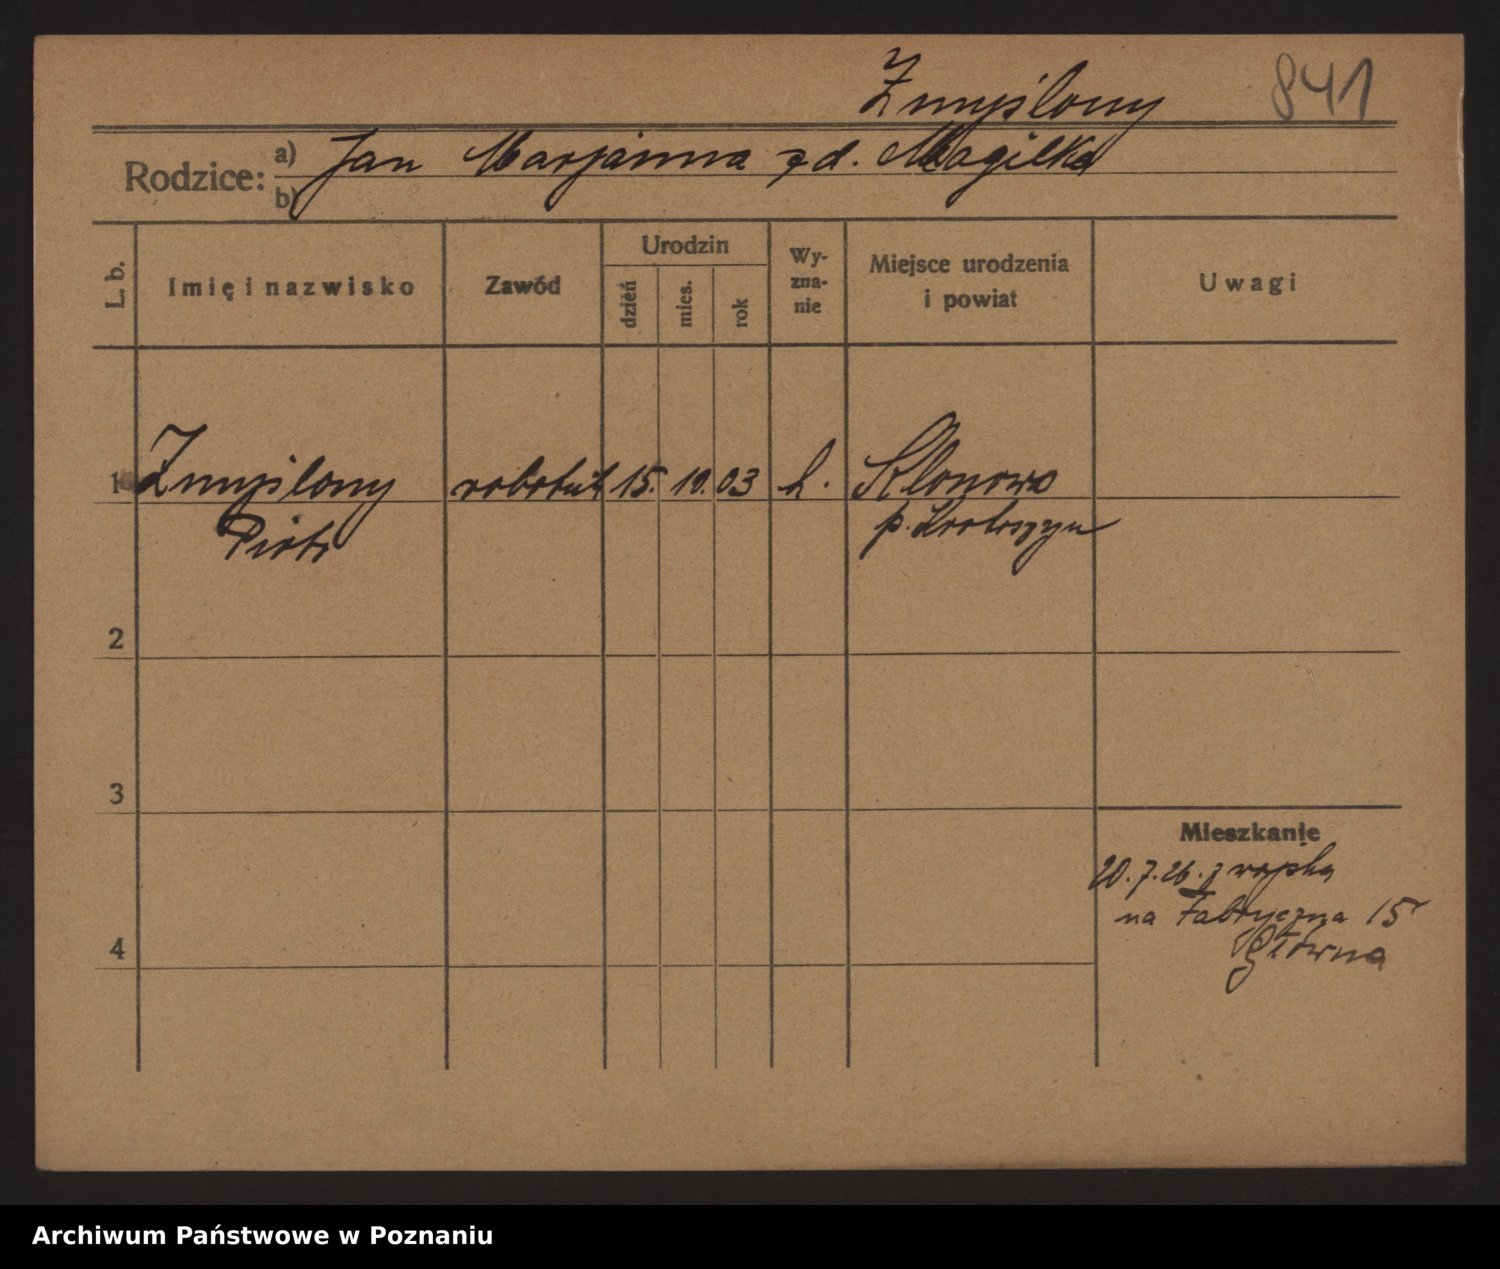 Zmyślony 841
Rodzice: a) Jan Marjanna zd. Magilka
b)
L. b. Imię i nazwisko Zawód Urodzin dzień mies. rok Wyznanie Miejsce urodzenia i powiat Uwagi
1 Zmyślony robotnik 15. 10. 03 Klonowo
Piotr p. Krotoszyn
2
3
Mieszkanie
20.7.26. z wojska
na Fabryczna 15
4 Główna
Archiwum Państwowe w Poznaniu